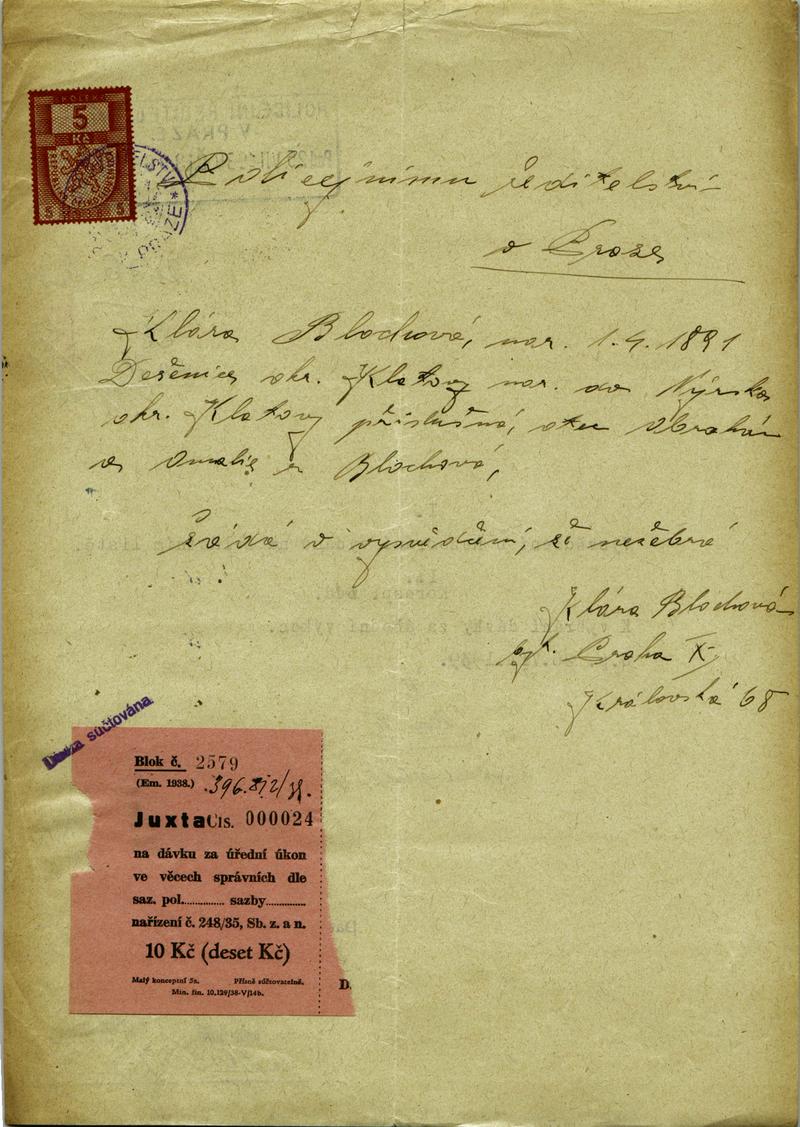 KOLEK
5
Kč
5 5
Policejnímu ředitelství
v Praze
Klára Blochová, nar. 1.4. 1891
Dešenice okr. Klatovy nar. do Nýrska
okr. Klatovy příslušná, otec Abrahám
a Amalie Blochová,
žádá o vysvědčení, že nežebrá
Klára Blochová
byt. Praha X,
Královská 68
súčtována
Blok č. 2579
(Em. 1938.)
Juxta Čis. 000024
na dávku za úřední úkon
ve věcech správních dle
saz. pol............. sazby.............
nařízení č. 248/35, Sb. z. a n.
10 Kč (deset Kč)
Malý konceptní 5a. Přísně súčtovatelné.
Min. fin. 10.129/38-V/14b.
D.